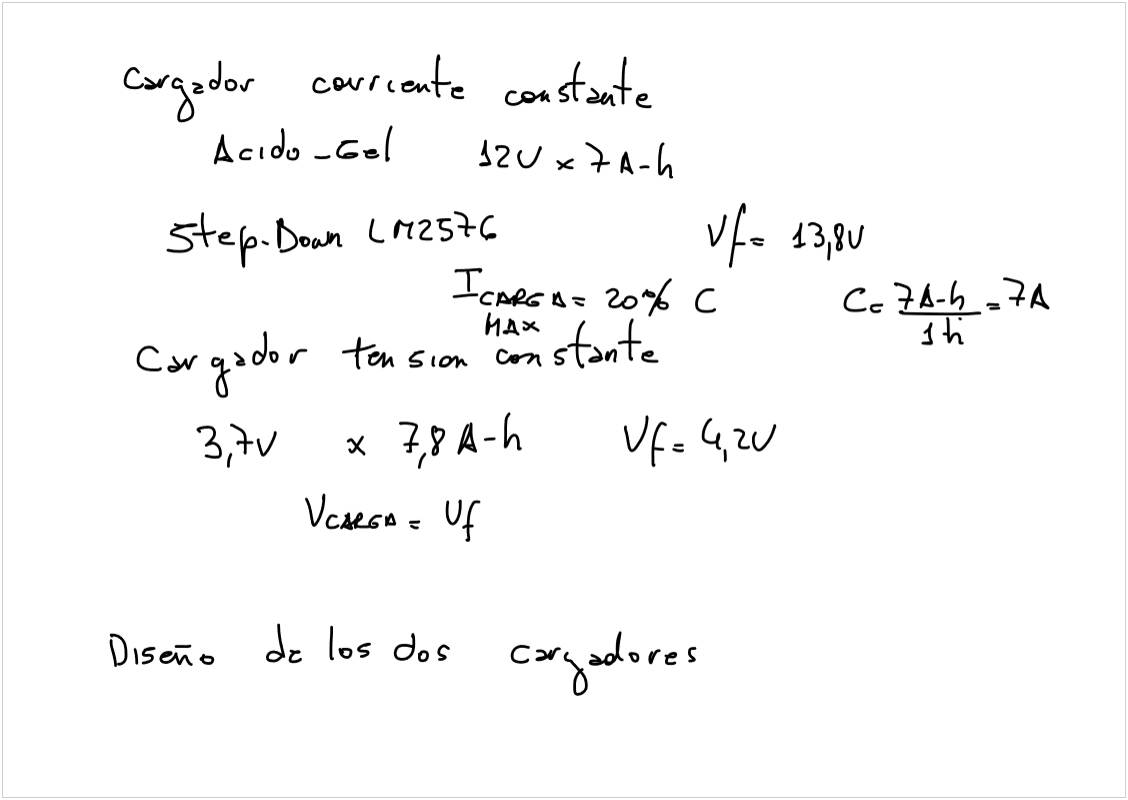 Cargador corriente constante
Acido-Gel 12V x 7A-h
Step-Down LM2576 Vf= 13,8V
ICARGA MAX = 20% C C= 7A-h/1h = 7A
Cargador tension constante
3,7V x 7,8 A-h Vf= 4,2V
VCARGA = Vf
Diseño de los dos cargadores